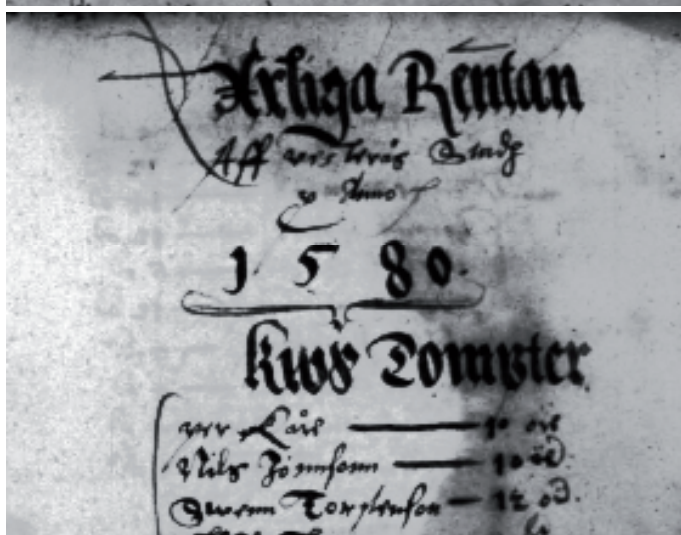 Årliga Rentan
Aff vesterås Stadz
Anno
1580
kws Tompter
per Kåre — 10 öre
Nils Jönnsonn — 10 öö
Swenn Torstenson — 12 öö